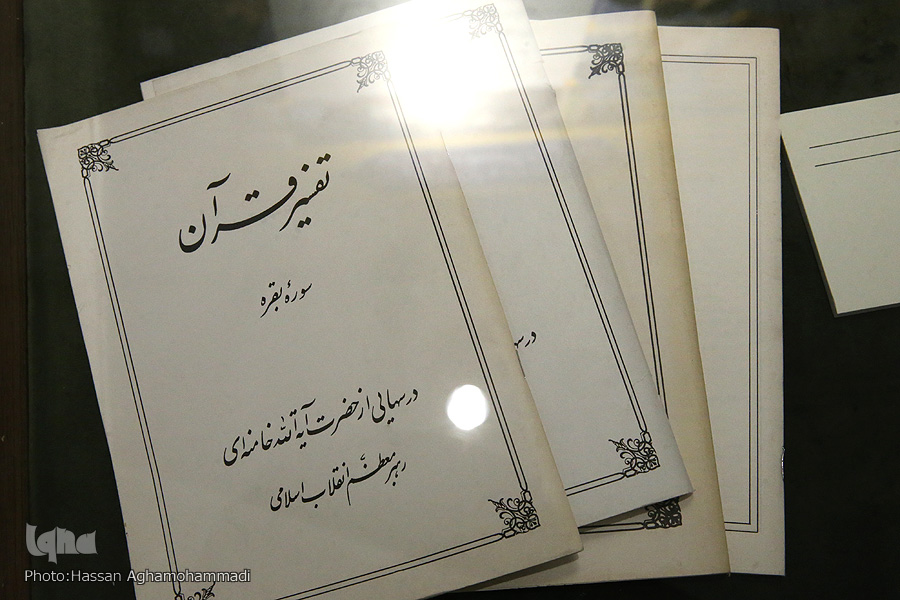 تفسیر قرآن
سورهٔ بقره
درسهایی از حضرت آیةالله خامنه‌ای
رهبر معظم انقلاب اسلامی
iqna
Photo:Hassan Aghamohammadi